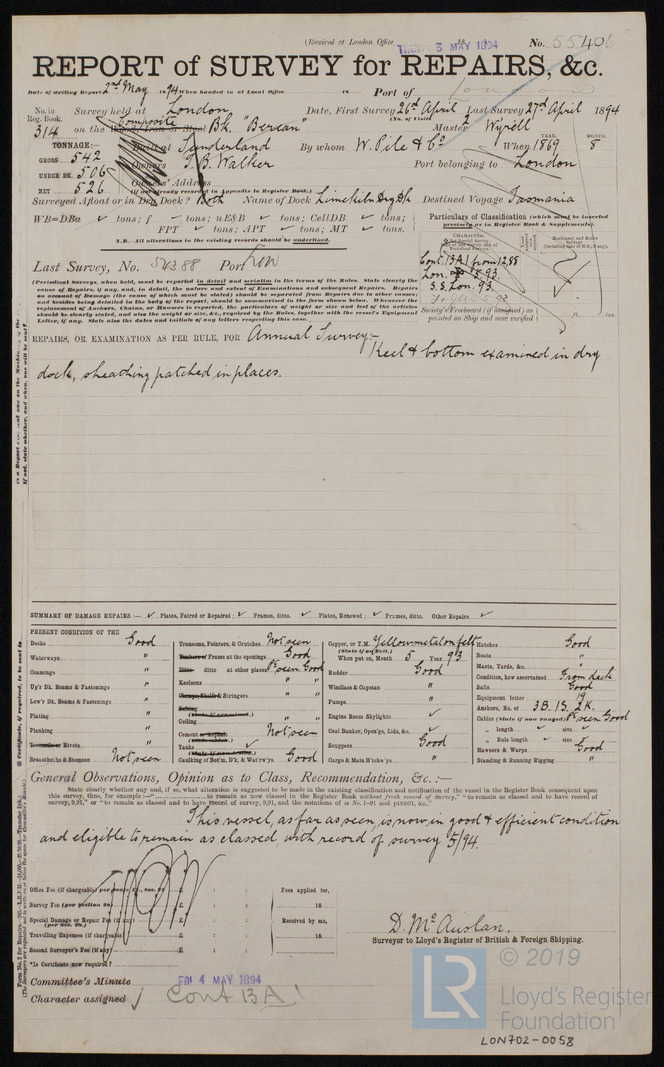 (Received at London Office THUR 3 MAY 1894 No. 55406
REPORT OF SURVEY for REPAIRS, &c.
Date of writing Report 2nd May 1894 When handed in at Local Office 18 Port of London
No. in Reg. Book. Survey held at London Date, First Survey 26th April Last Survey 27th April 1894
(No. of Visits 2
314 on the Composite Wood, Iron or Steel Bk. "Berean" Master Wyrell
TONNAGE:— Built at Sunderland By whom W. Pile & Co When 1869 YEAR. MONTH. 8
GROSS 542
UNDER DK. 506 Owners T. B. Walker Port belonging to London
NET 526 Owners' Address
(If not already recorded in Appendix to Register Book.)
Surveyed Afloat or in Dry Dock? Both Name of Dock Limekiln Dry Dk Destined Voyage Tasmania
WB=DBa tons; f tons; uE&B tons; CellDB tons;
FPT tons; APT tons; MT tons.
N.B.—All alterations in the existing records should be underlined.
Particulars of Classification (which must be inserted precisely as in Register Book & Supplements).
Last Survey, No. 54388 Port Lon
Cont. 13A1 from 12,88
S.S. Lon. 93.
(Periodical Surveys, when held, must be reported in detail and seriatim in the terms of the Rules. State clearly the
cause of Repairs, if any, and, in detail, the nature and extent of Examinations and subsequent Repairs. Repairs
on account of Damage (the cause of which must be stated) should be separated from Repairs due to other causes;
and besides being detailed in the body of the report, should be summarised in the form shown below. Whenever the
replacement of Anchors, Chains, or Hawsers is reported, the particulars of weight or size and test of the articles
should be clearly stated, and also the weight or size, &c., required by the Rules, together with the vessel's Equipment
Letter, if any. State also the dates and initials of any letters respecting this case.
Society's Freeboard (if assigned) as
painted on Ship and now verified
REPAIRS, OR EXAMINATION AS PER RULE, FOR Annual Survey:—
Keel & bottom examined in dry
dock, sheathing patched in places.
SUMMARY OF DAMAGE REPAIRS:— Plates, Faired or Repaired: Frames, ditto. Plates, Renewed: Frames, ditto. Other Repairs
PRESENT CONDITION OF THE
Decks Good
Waterways "
Coamings "
Up'r Dk. Beams & Fastenings "
Low'r Dk. Beams & Fastenings "
Plating "
Planking "
Treenails or Rivets "
Breasthooks & Stemson Not seen
Transoms, Pointers, & Crutches Not seen
Timbers or Frame at the openings Good
Ditto ditto at other places Pt seen Good
Keelsons " "
Clamps, Shelfs & Stringers " "
Ceiling "
Cement or Asphalt Not seen
Tanks
Caulking of Bot'm, Dk, & Wat'rw'ys Good
Copper, or Y.M. Yellow metal on felt
When put on, Month 5 Year 93
Rudder Good
Windlass & Capstan "
Pumps "
Engine Room Skylights
Coal Bunker, Open'gs, Lids, &c.
Scuppers Good
Cargo & Main H'tchw'ys "
Hatches Good
Boats "
Masts, Yards, &c. "
Condition, how ascertained From deck
Sails Good
Equipment letter 19
Anchors, No. of 3B. 1S. 2K.
Cables (State if now ranged) Pt seen Good
" length size
" Rule length size
Hawsers & Warps Good
Standing & Running Rigging "
General Observations, Opinion as to Class, Recommendation, &c.:—
State clearly whether any, and if so, what alteration is suggested to be made in the existing classification and notification of the vessel in the Register Book consequent upon
this survey, thus, for example:—" to remain as now classed in the Register Book without fresh record of Survey," "to remain as classed and to have record of
survey, 9,91," or "to remain as classed and to have record of survey, 9,91, and the notations of
This vessel, as far as seen, is now in good & efficient condition
and eligible to remain as classed, with record of survey 5/94.
Office Fee (if chargeable) £ : : Fees applied for,
Survey Fee £ : : 18
Special Damage or Repair Fee (if any) £ : : Received by me,
Travelling Expenses (if chargeable) £ : : 18
Second Surveyor's Fee (if any) £ : :
D. McAuslan.
Surveyor to Lloyd's Register of British & Foreign Shipping.
*Is Certificate now required?
Committee's Minute FRI. 4 MAY 1894
Character assigned Cont 13A1
© 2019
LR Lloyd's Register
Foundation
LON702-0058